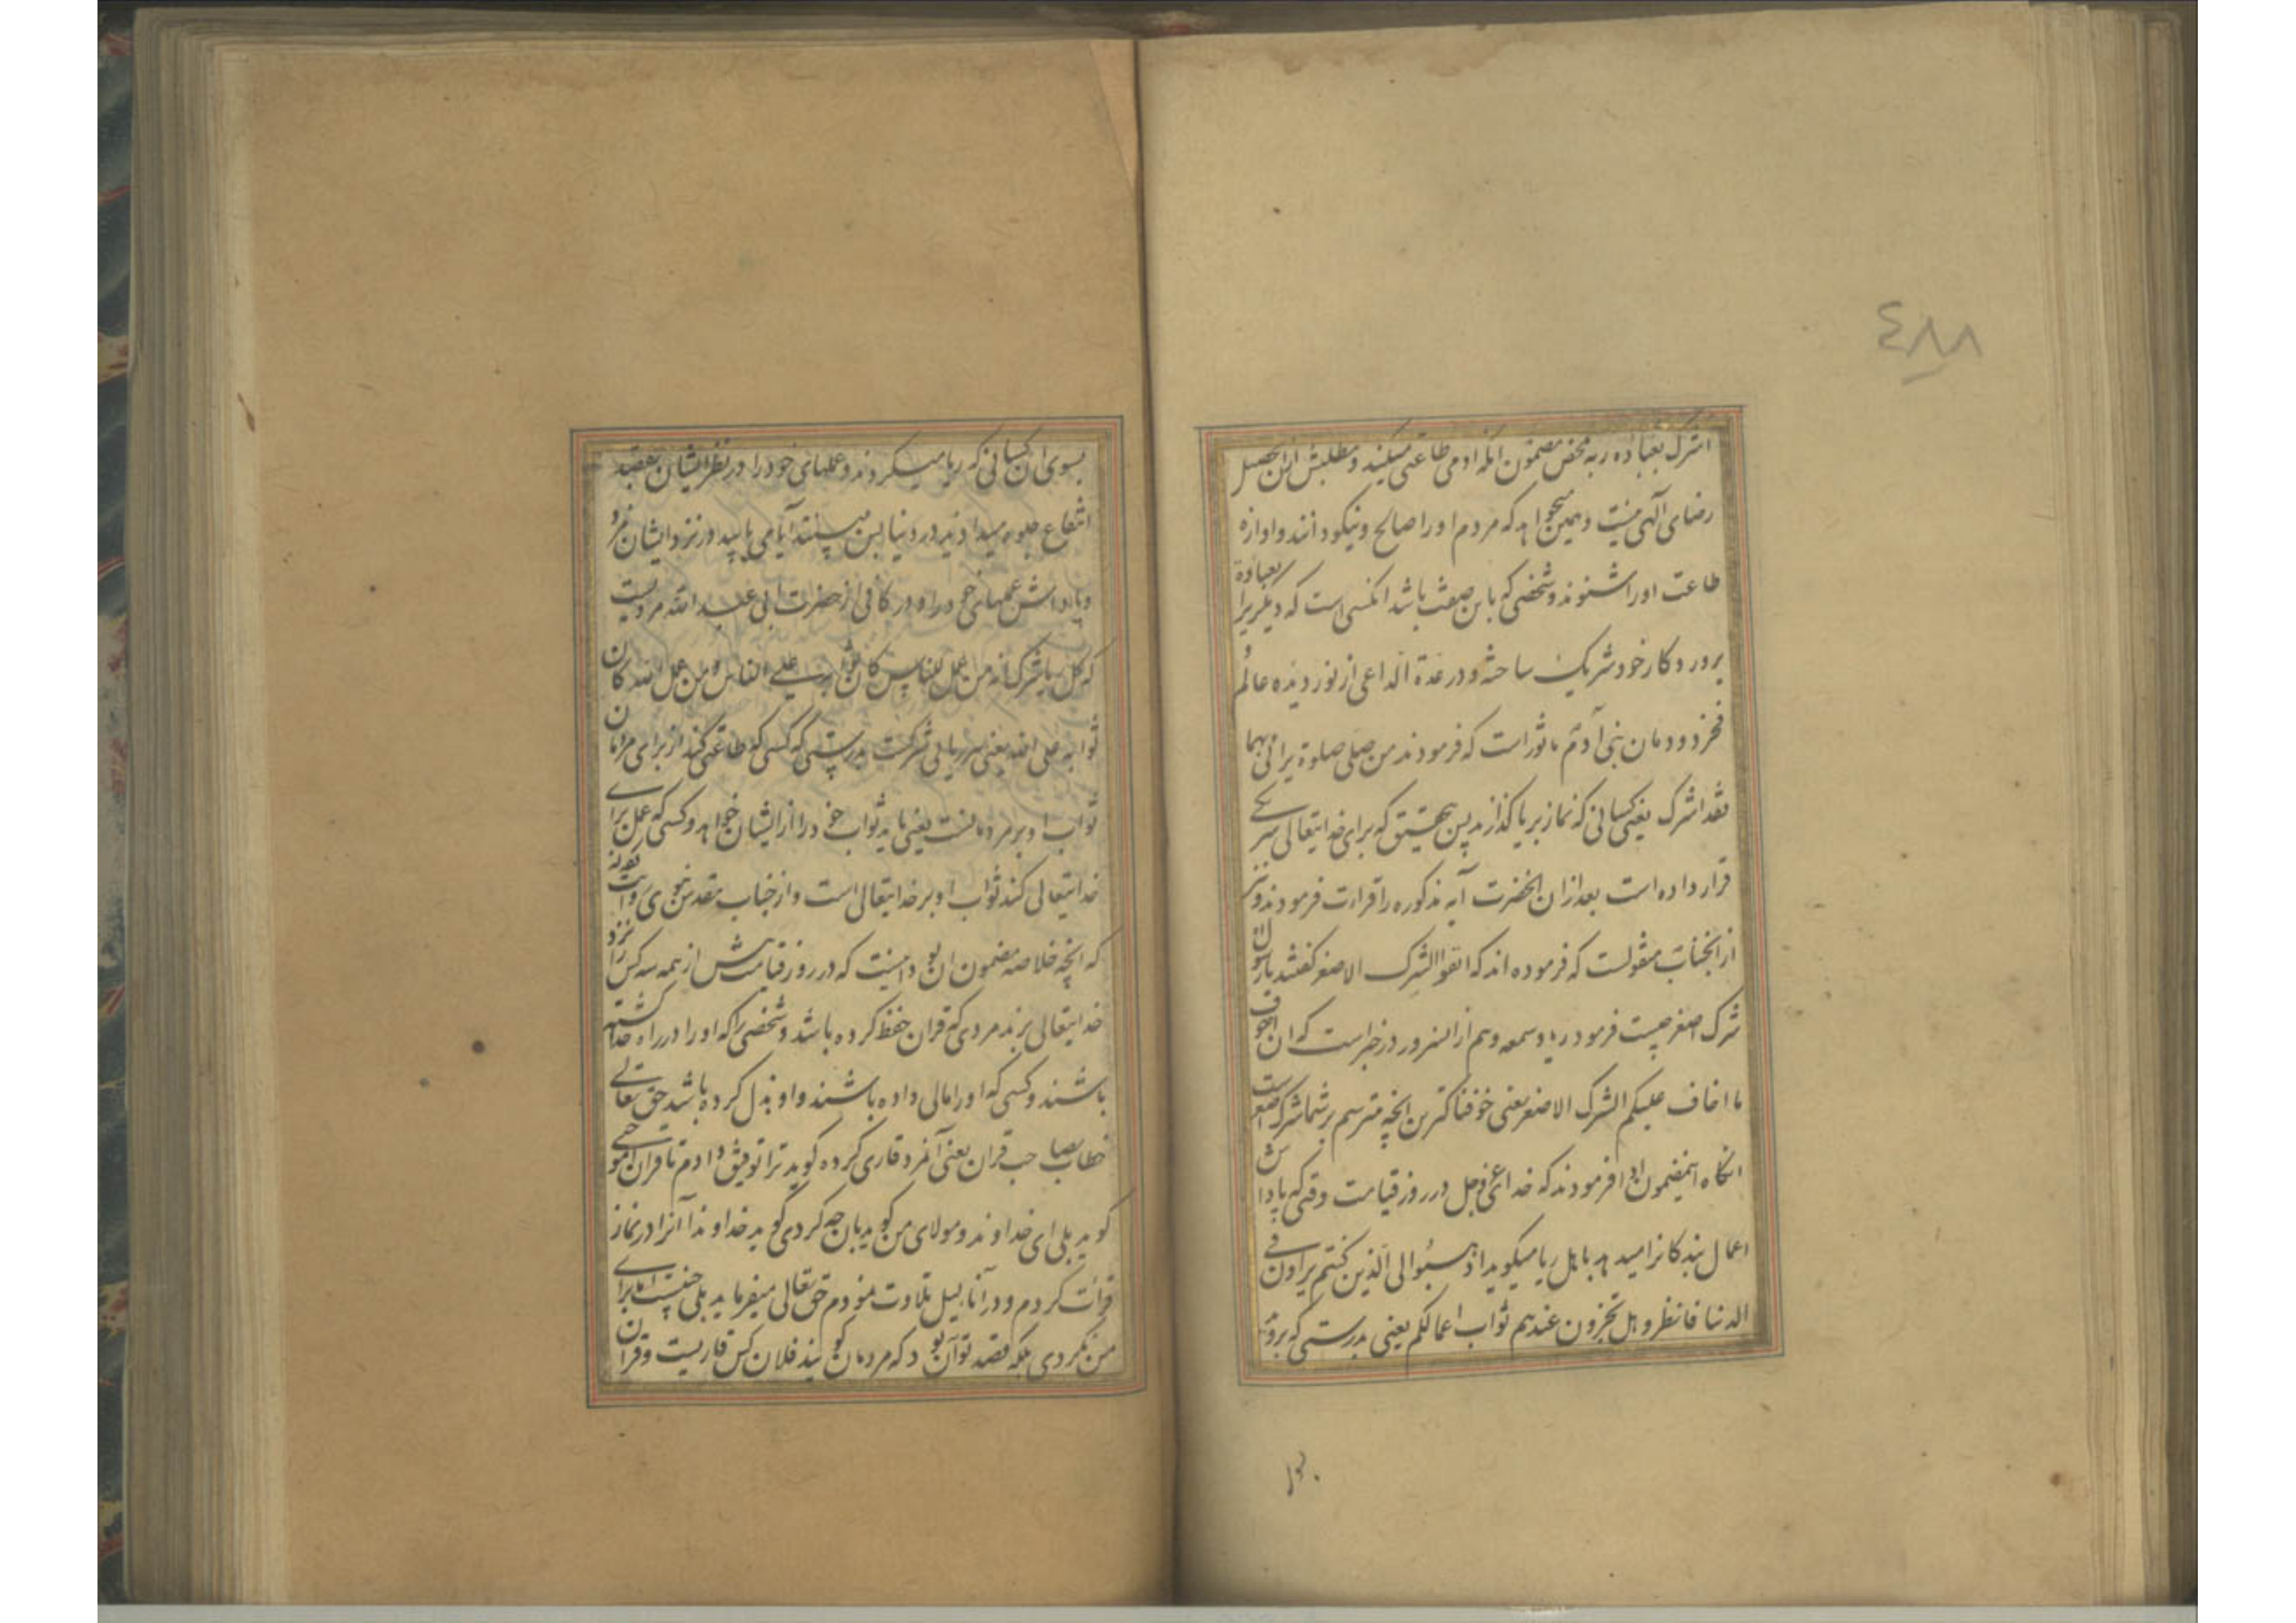 ٤٨٨
اشرک بعباده ربه محض مضمون انکه ادمی طاعتی میکند و مطلبش از ان تحصیل
رضای آلهی نیست و همین میخواهد که مردم او را صالح و نیکو دانند و اوازه
طاعت او را شنوند و شخصی که باین صفت باشد انکسی است که دیگریرا بعبادة
پرورد کار خود شریک ساخته و در عدة الداعی از نور دیده عالم
فخر دودمان بنی آدم ماثور است که فرمودند من صلی صلوة یرائی بها
فقد اشرک یعنی کسانی که نماز بریا کذارند پس بتحقیق که برای خدایتعالی شریکی
قرار داده است بعد از ان انحضرت آیه مذکوره را قراءت فرمودند و نیز
از انجناب منقولست که فرموده اند که اتقوا الشرک الاصغر کفتند یا رسول
شرک اصغر چیست فرمود ریا و سمعه و هم از انسرور در خبر است که ان اخوف
ما اخاف علیکم الشرک الاصغر یعنی خوفناکترین انچه میترسم بر شما شرک اصغر است
انکاه اینمضمون ادا فرمودند که خدای عز و جل در روز قیامت وقتی که پاداش
اعمال بندکانرا میدهد باهل ریا میکوید اذهبوا الی الذین کنتم یراون فی
الدنیا فانظروا هل تجزون عندهم ثواب اعمالکم یعنی بدرستی که بروید
بسوی ان کسانی که ریا میکردند و عملهای خود را در نظر ایشان بقصد
انتفاع جلوه میدادید در دنیا پس ببینید آیا می یابید در نزد ایشان مزد
و پاداش عملهای خود را و در کافی از حضرت ابی عبد الله مرویست
که کل ریا شرک انه من عمل للناس کان ثوابه علی الناس و من عمل لله کان
ثوابه علی الله یعنی هر ریائی شرکست بدرستی که کسی که طاعتی کند از برای مردمان
ثواب او بر مردمانست یعنی باید ثواب خود را از ایشان خواهد و کسی که عمل برای
خدایتعالی کند ثواب او بر خدایتعالی است و از جناب مقدس نبوی روایت نموده
که انچه خلاصه مضمون ان بود اینست که در روز قیامت پیش از همه سه کس را نزد
خدایتعالی برند مردی که قران حفظ کرده باشد و شخصی را که او را در راه خدا کشته
باشند و کسی که او را مالی داده باشند و او بذل کرده باشد حق تعالی
خطاب بصاحب قران یعنی آنمرد قاری کرده کوید ترا توفیق دادم تا قران اموختی
کوید بلی ای خداوند و مولای من کوید بان چه کردی کوید خداوندا آنرا در نماز
قرائت کردم و در آناء لیل تلاوت نمودم حق تعالی میفرماید بلی چنینست اما برای
من نکردی بلکه قصد تو آن بود که مردمان کویند فلان کس قاریست و قران